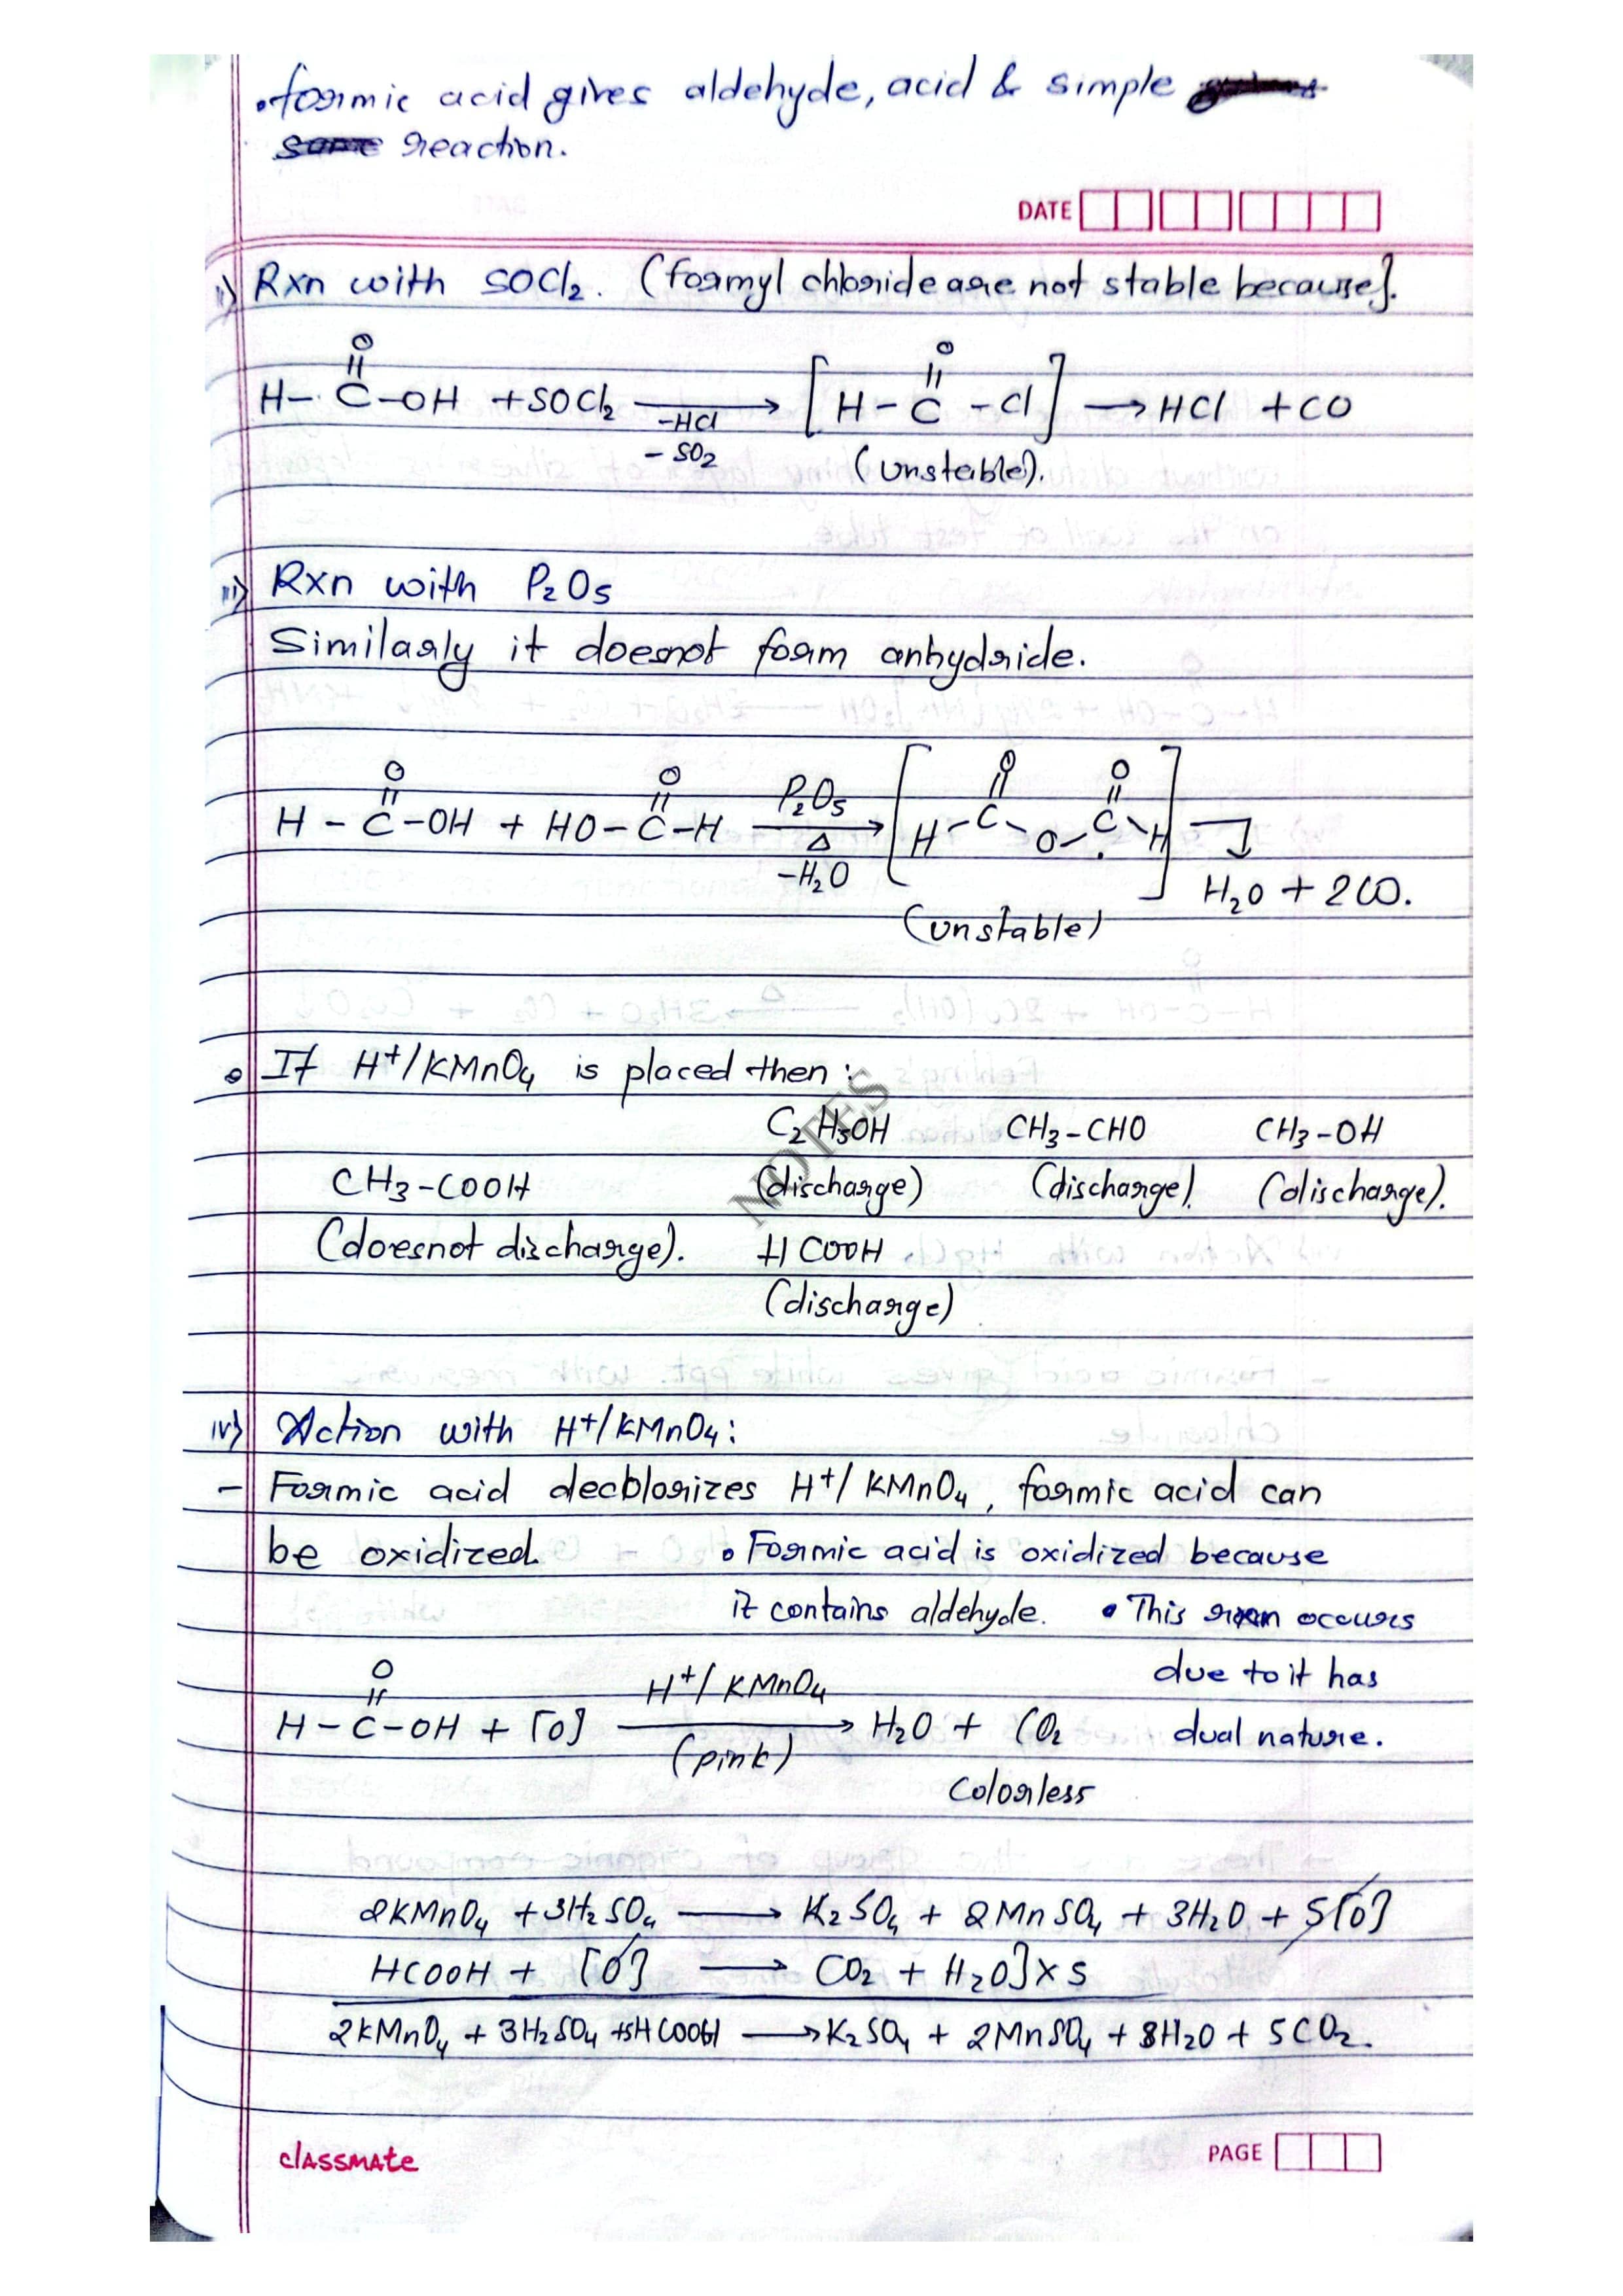 • formic acid gives aldehyde, acid & simple
reaction.
DATE
ii) Rxn with SOCl2. (formyl chloride are not stable because}.
O
||
H-C-OH + SOCl2 ⟶ [H-C-Cl] ⟶ HCl + CO
O
||
-HCl
-SO2
(unstable).
iii) Rxn with P2O5
Similarly it doesnot form anhydride.
O O P2O5 O O
|| || || ||
H-C-OH + HO-C-H ⟶ [H-C-O-C-H]
Δ
-H2O
H2O + 2CO.
(unstable)
• If H+/KMnO4 is placed then :
C2H5OH CH3-CHO CH3-OH
CH3-COOH (discharge) (discharge). (discharge).
(doesnot discharge). HCOOH
(discharge)
NOTES
iv) Action with H+/KMnO4:
- Formic acid decolorizes H+/KMnO4, formic acid can
be oxidized. • Formic acid is oxidized because
it contains aldehyde. • This rxn occurs
due to it has
dual nature.
O
||
H-C-OH + [O] ⟶ H2O + CO2
H+/KMnO4
(pink)
Colorless
2KMnO4 + 3H2SO4 ⟶ K2SO4 + 2MnSO4 + 3H2O + 5[O]
HCOOH + [O] ⟶ CO2 + H2O]×5
2KMnO4 + 3H2SO4 + 5HCOOH ⟶ K2SO4 + 2MnSO4 + 8H2O + 5CO2.
classmate
PAGE